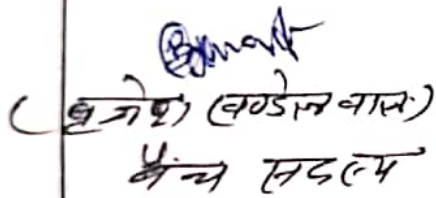 (बृजेश खण्डेलवाल)
बैंच सदस्य